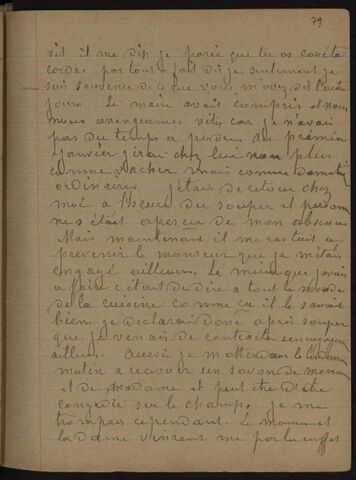 79
vit il me dis; je parie que tu as cassé ta
corde pas tout à fait dis je seulement je
me suis souvenu de ce que vous m'avez dit l'autre
jour. Le maire avait compris et nous
nous arrangeames vite car je n'avais
pas du temps a perdre. Au premier
janvier j'irai chez lui non plus
comme vacher mais comme domestique
ordinaire. j'étais de retour chez
moi à l'heure du souper et personne
ne s'était aperçu de mon absence
Mais maintenant il me restait a
prevenir le monsieur que je m'étais
engagé ailleurs. Le mieux que j'avais
a faire c'était de dire a tout le monde
de la cuisine comme ça il le saurait
bien. je declarai donc après souper
que je venais de contracter un engagement
ailleurs. Aussi je m'attendais le lendemain
matin a recevoir un savon de monsieur
et de Madame et peut être d'être
congedié sur le champs, je me
trompais cependant. Le monsieur et
la dame vinrent me parler en effet